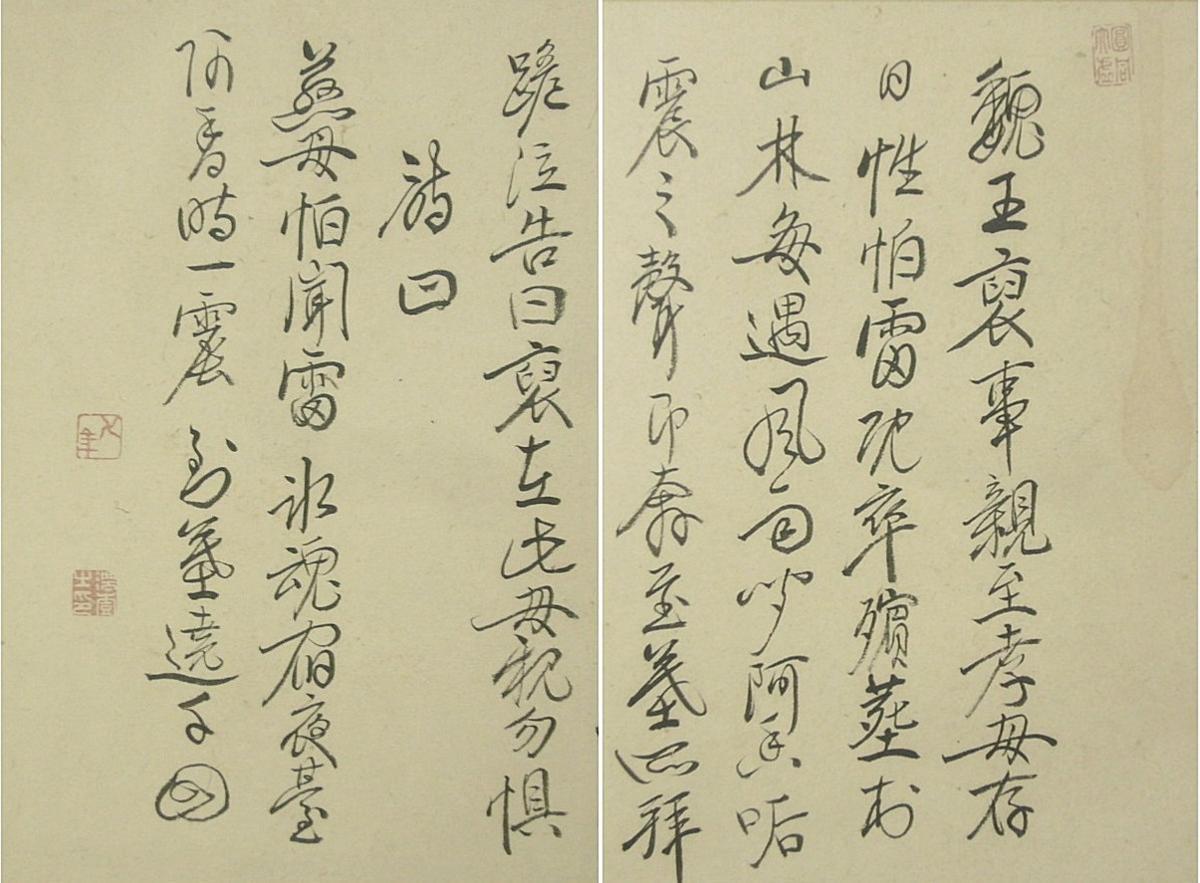 魏王裒事親至孝母存
日性怕雷既卒殯塟於
山林每遇風雨聞阿香响
震之聲即奔至墓所拜
跪泣告曰裒在此母親勿懼
詩曰
慈母怕聞雷冰魂宿夜臺
阿香時一震到墓遶千回